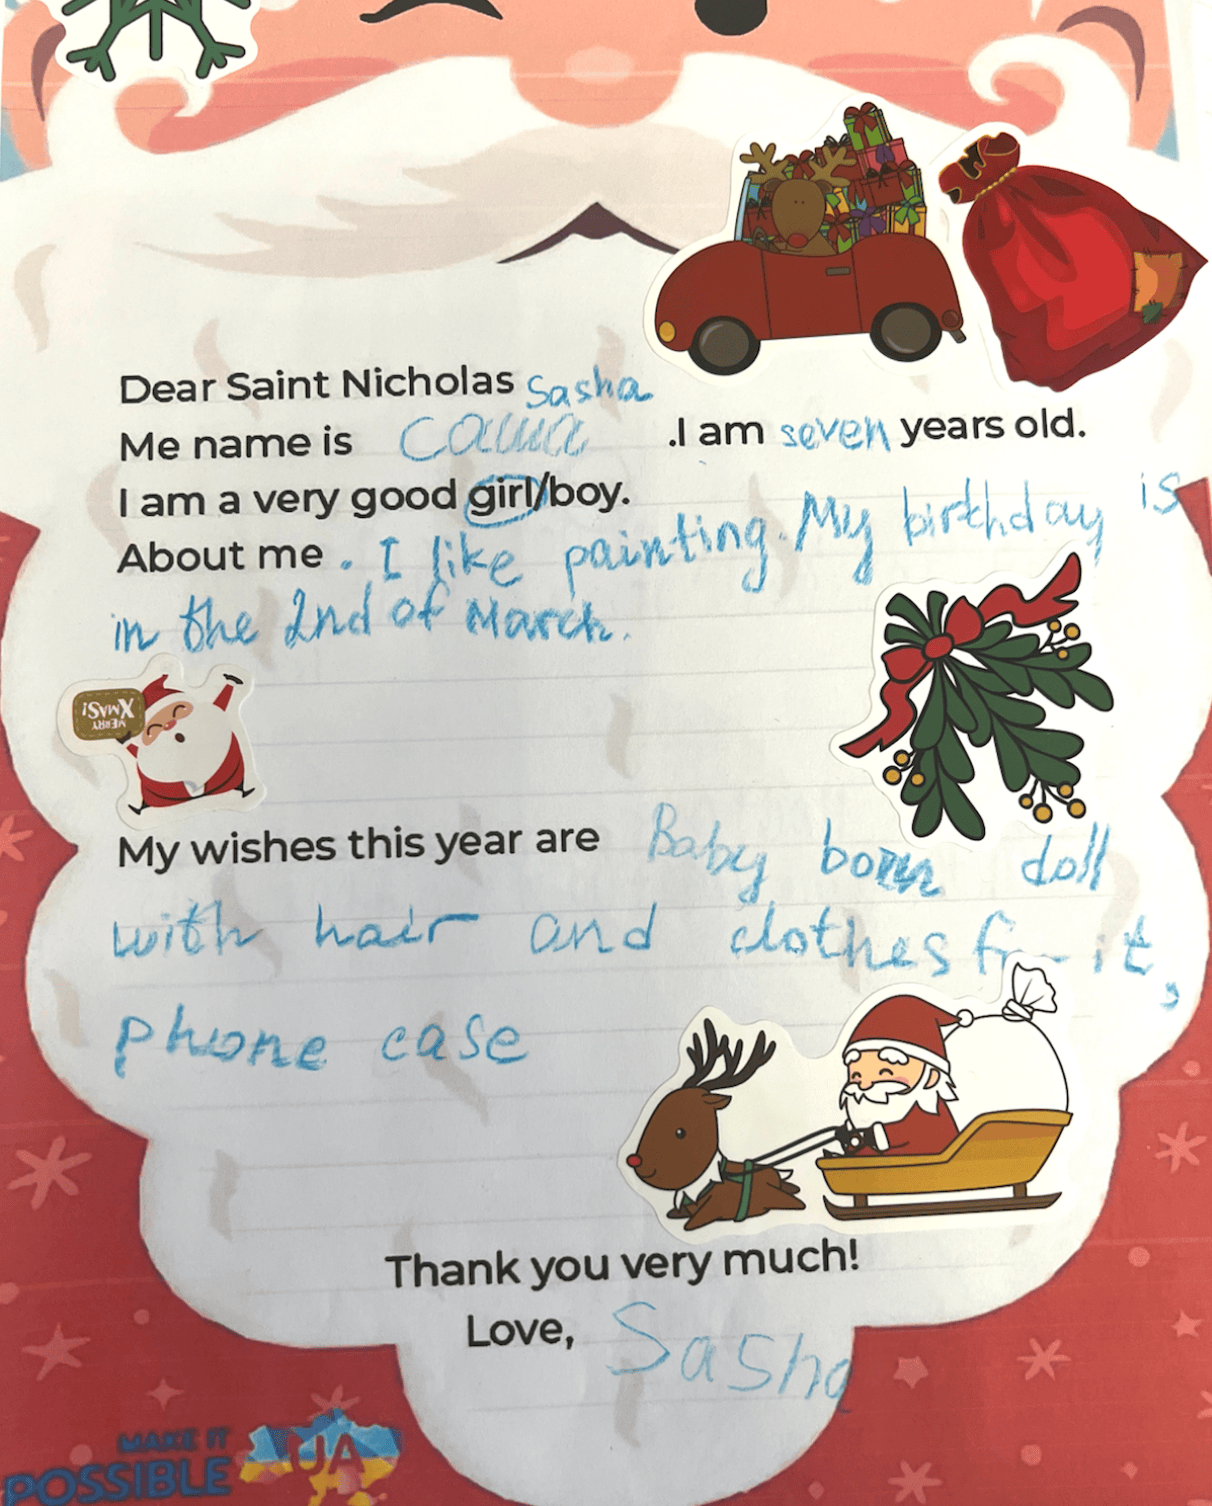 Dear Saint Nicholas Sasha
Me name is Саша .I am seven years old.
I am a very good girl/boy.
About me . I like painting. My birthday is
in the 2nd of March.
MERRY
XMAS!
My wishes this year are Baby born doll
with hair and clothes it,
phone case
Thank you very much!
Love, Sasha
MAKE IT
POSSIBLE UA